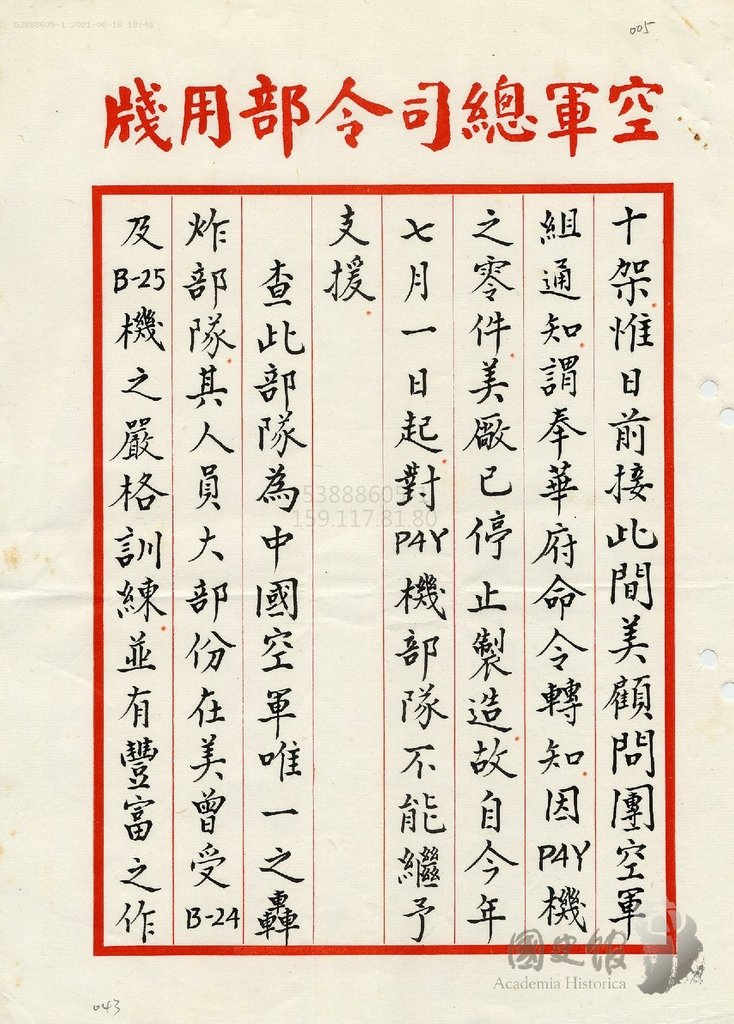 53888605-1 2021-06-16 18:48
005
空軍總司令部用牋
十架惟日前接此間美顧問團空軍
組通知謂奉華府命令轉知因P4Y機
之零件美廠已停止製造故自今年
七月一日起對P4Y機部隊不能繼予
支援
查此部隊為中國空軍唯一之轟
炸部隊其人員大部份在美曾受B-24
及B-25機之嚴格訓練並有豐富之作
53888605-1
159.117.81.80
國史館
Academia Historica
043